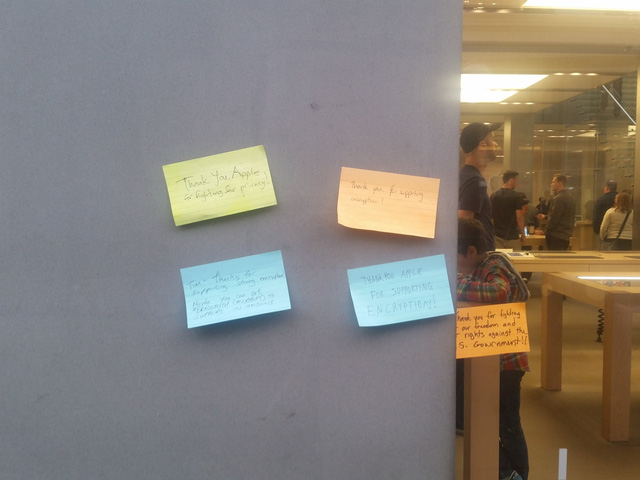 Thank You Apple
for fighting for privacy!
Thank you for supporting
encryption!
Tim- Thanks for
supporting strong encryption
THANK YOU APPLE
FOR SUPPORTING
ENCRYPTION!
hank you for fighting
our freedom and
rights against the
S. Government!!